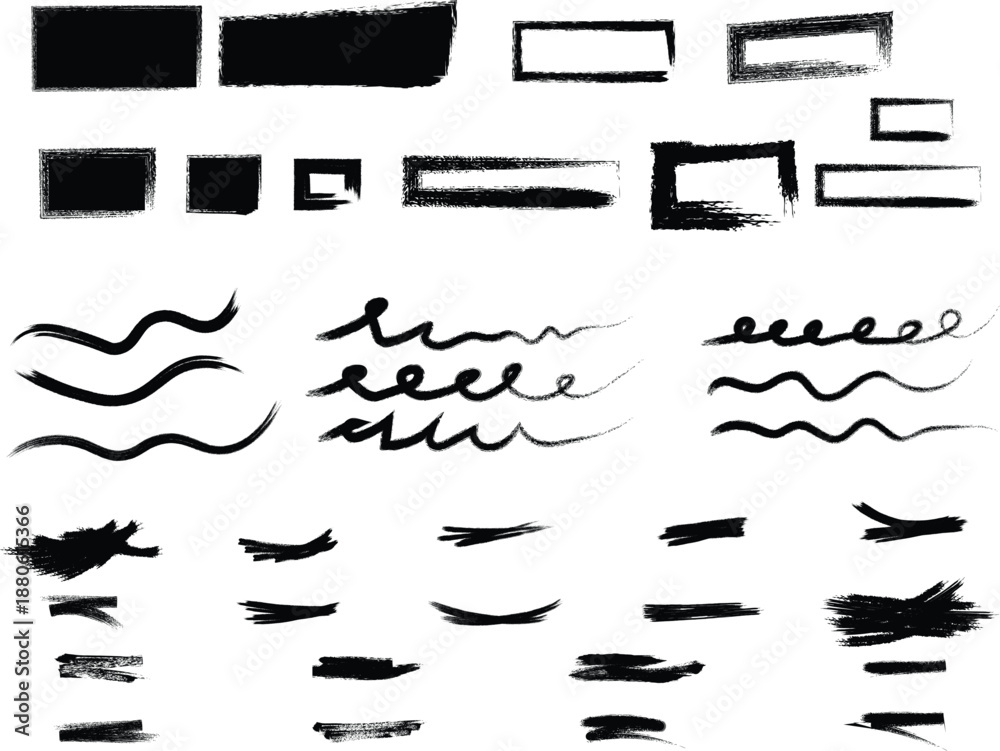 Adobe Stock | #1880615366